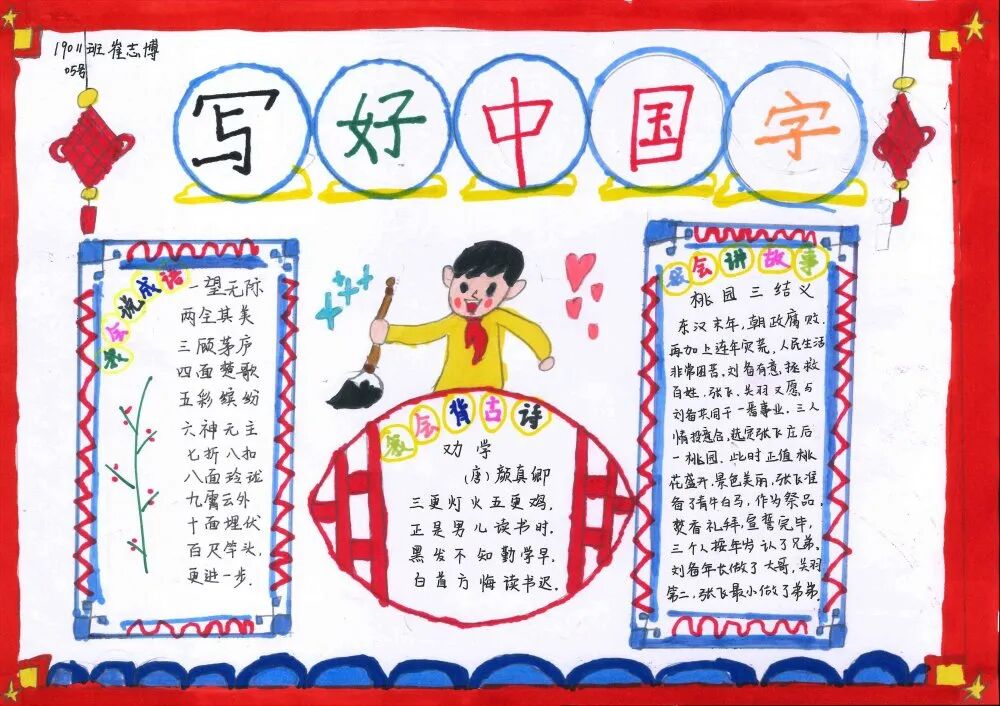 1901班崔志博
05号
写好中国字
我会说成语
一望无际
两全其美
三顾茅庐
四面楚歌
五彩缤纷
六神无主
七折八扣
八面玲珑
九霄云外
十面埋伏
百尺竿头,
更进一步.
我会背古诗
劝学
(唐)颜真卿
三更灯火五更鸡,
正是男儿读书时.
黑发不知勤学早,
白首方悔读书迟.
我会讲故事
桃园三结义
东汉末年,朝政腐败.
再加上连年灾荒,人民生活
非常困苦.刘备有意拯救
百姓,张飞、关羽又愿与
刘备共同干一番事业.三人
情投意合,选定张飞庄后
一桃园.此时正值桃
花盛开,景色美丽,张飞准
备了青牛白马,作为祭品,
焚香礼拜,宣誓完毕,
三个人按年岁认了兄弟.
刘备年长做了大哥,关羽
第二,张飞最小做了弟弟.